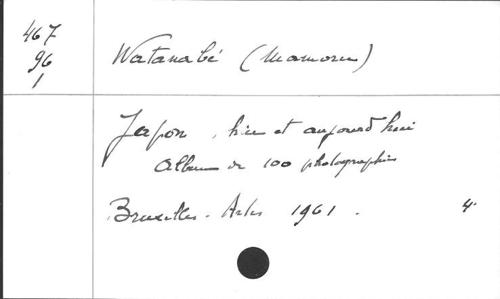 467
96
1
Watanabé (Mamoru)
Japon, hier et aujourd'hui
album de 100 photographies
Bruxelles. Arts 1961. 4°